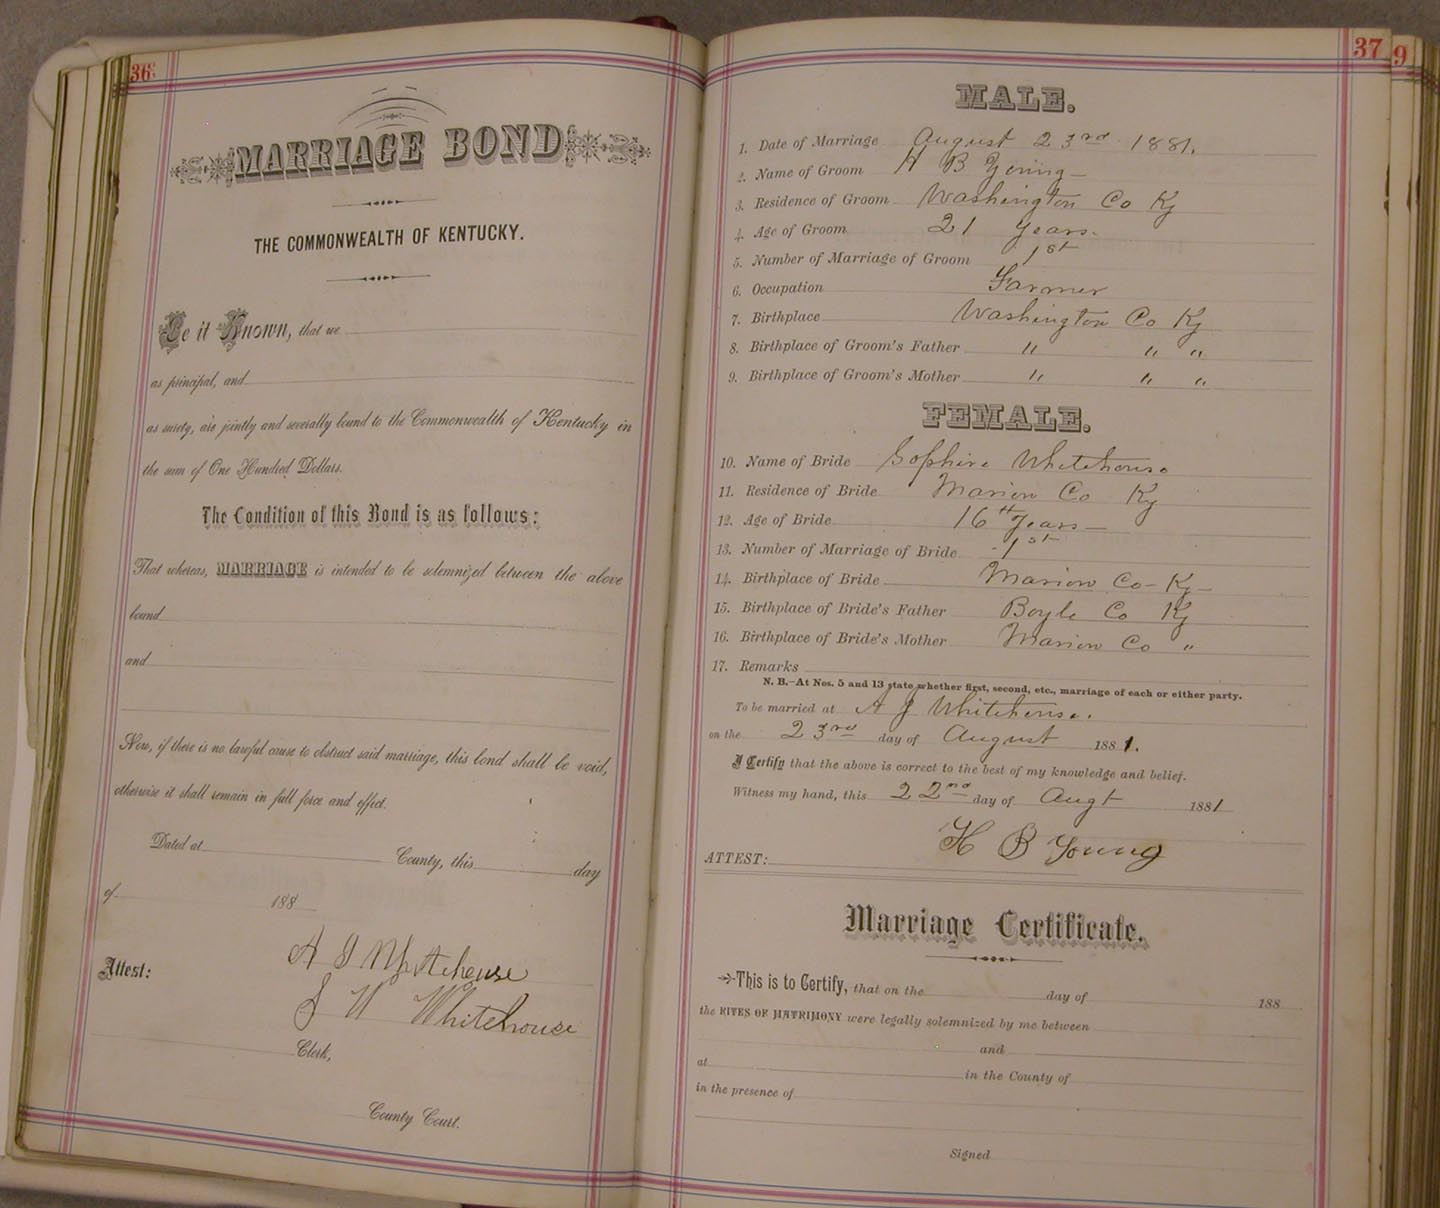 36
MARRIAGE BOND
THE COMMONWEALTH OF KENTUCKY.
Be it Known, that we
as principal, and
as surety, are jointly and severally bound to the Commonwealth of Kentucky in
the sum of One Hundred Dollars.
The Condition of this Bond is as follows:
That whereas, MARRIAGE is intended to be solemnized between the above
bound
and
Now, if there is no lawful cause to obstruct said marriage, this bond shall be void,
otherwise it shall remain in full force and effect.
Dated at County, this day
of 188
Attest:
A J Whitehouse
J W Whitehouse
Clerk,
County Court.
37
9
MALE.
1. Date of Marriage August 23rd 1881.
2. Name of Groom H B Young
3. Residence of Groom Washington Co Ky
4. Age of Groom 21 years.
5. Number of Marriage of Groom 1st
6. Occupation Farmer
7. Birthplace Washington Co Ky
8. Birthplace of Groom's Father " " "
9. Birthplace of Groom's Mother " " "
FEMALE.
10. Name of Bride Sophire Whitehouse
11. Residence of Bride Marion Co Ky
12. Age of Bride 16th Years
13. Number of Marriage of Bride 1st
14. Birthplace of Bride Marion Co - Ky -
15. Birthplace of Bride's Father Boyle Co Ky
16. Birthplace of Bride's Mother Marion Co "
17. Remarks
N. B.—At Nos. 5 and 13 state whether first, second, etc., marriage of each or either party.
To be married at A J Whitehouse.
on the 23rd day of August 1881.
I Certify that the above is correct to the best of my knowledge and belief.
Witness my hand, this 22nd day of Augt 1881
H B Young
ATTEST:
Marriage Certificate.
This is to Certify, that on the day of 188
the RITES OF MATRIMONY were legally solemnized by me between
and
at in the County of
in the presence of
Signed